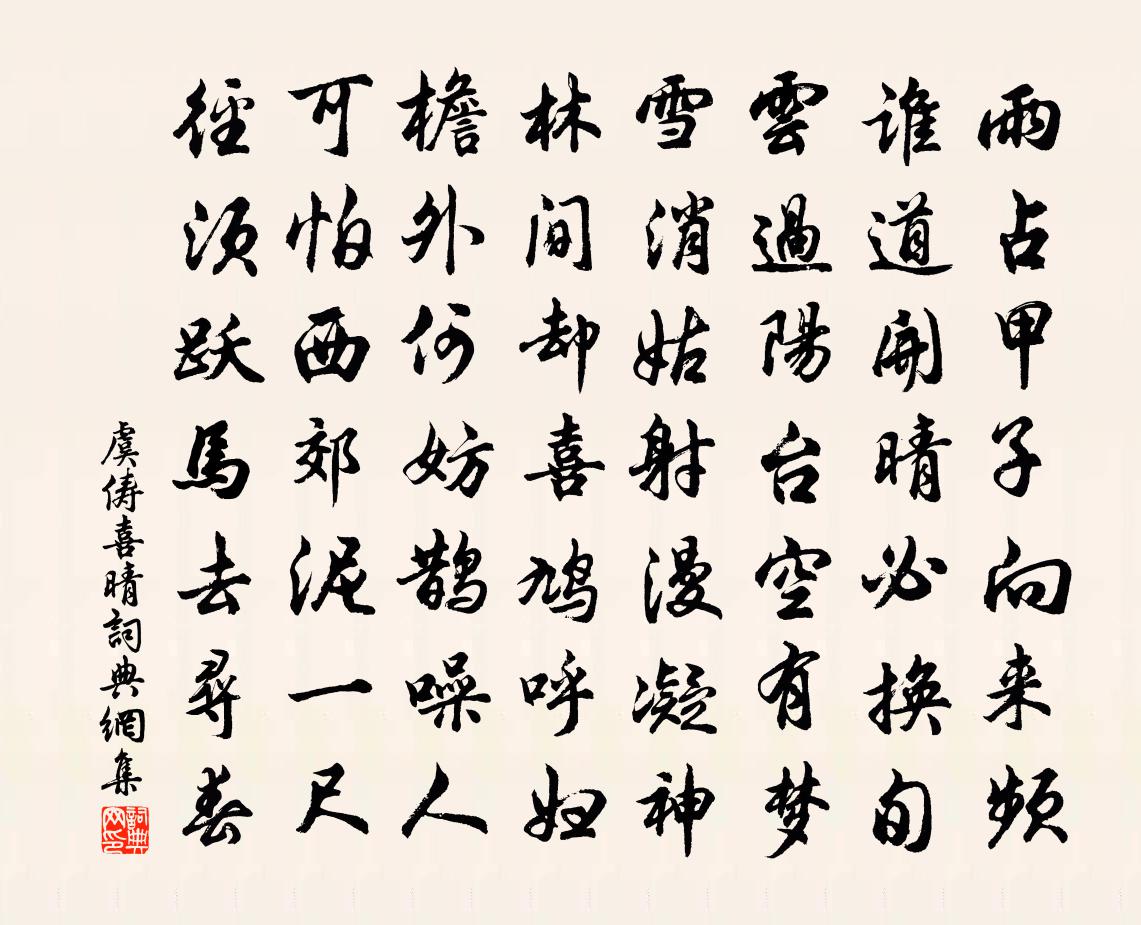 雨占甲子向来频
谁道開晴必换旬
雲過陽台空有梦
雪消姑射漫凝神
林间却喜鸠呼妇
檐外何妨鹊噪人
可怕西郊泥一尺
徑须跃馬去尋春
虞儔喜晴詞典網集
詞典网印